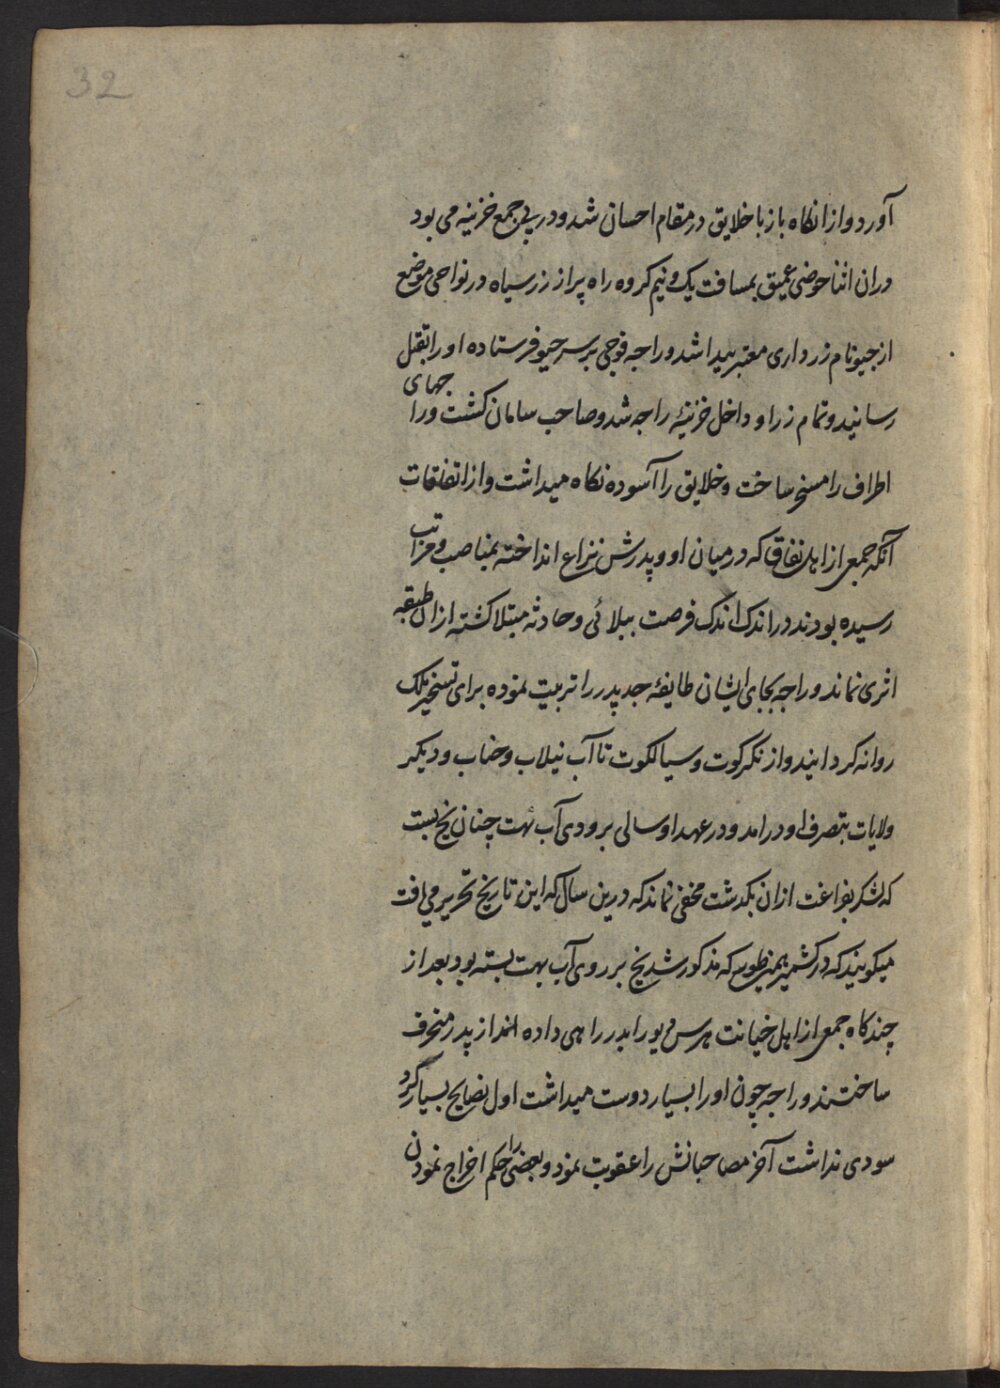 32
آورد و از انکاه باز با خلایق در مقام احسان شد و در پی جمع خزینه می بود
دران اثنا حوضی عمیق بمسافت یک و نیم کروه راه پر از زر سیاه در نواحی موضع
از جیو نام زرداری معتبر پیدا شد و راجه فوجی بر سر جیو فرستاده او را بقتل
رسانید و تمام زر او داخل خزینهٔ راجه شد و صاحب سامان کشت و راجهای
اطراف را مسخر ساخت و خلایق را آسوده نکاه میداشت و از اتفاقات
آنکه جمعی از اهل نفاق که درمیان او و پدرش نزاع انداخته بمناصب و مراتب
رسیده بودند در اندک اندک فرصت ببلائی و حادثه مبتلا کشته ازان طبقه
اثری نماند و راجه بجای ایشان طایفهٔ جد پدر را تربیت نموده برای تسخیر ملک
روانه کردانید و از نکرکوت و سیالکوت تا آب نیلاب و حناب و دیکر
ولایات بتصرف او درامد و در عهد او سالی بر روی آب بهت چنان یخ بست
که لشکر بفراغت ازان بکدشت مخفی نماند که درین سال که این تاریخ تحریر می یافت
میکویند که در کشمیر بهمین طور که مذکور شد یخ بر روی آب بهت بسته بود بعد از
چندکاه جمعی از اهل خیانت پدر را راهی داده اند از پدر منحرف
ساختند و راجه چون او را بسیار دوست میداشت اول نصایح بسیار کرد
سودی نداشت آخر مصاحبانش را عقوبت نمود و بعضی را حکم اخراج نمودن